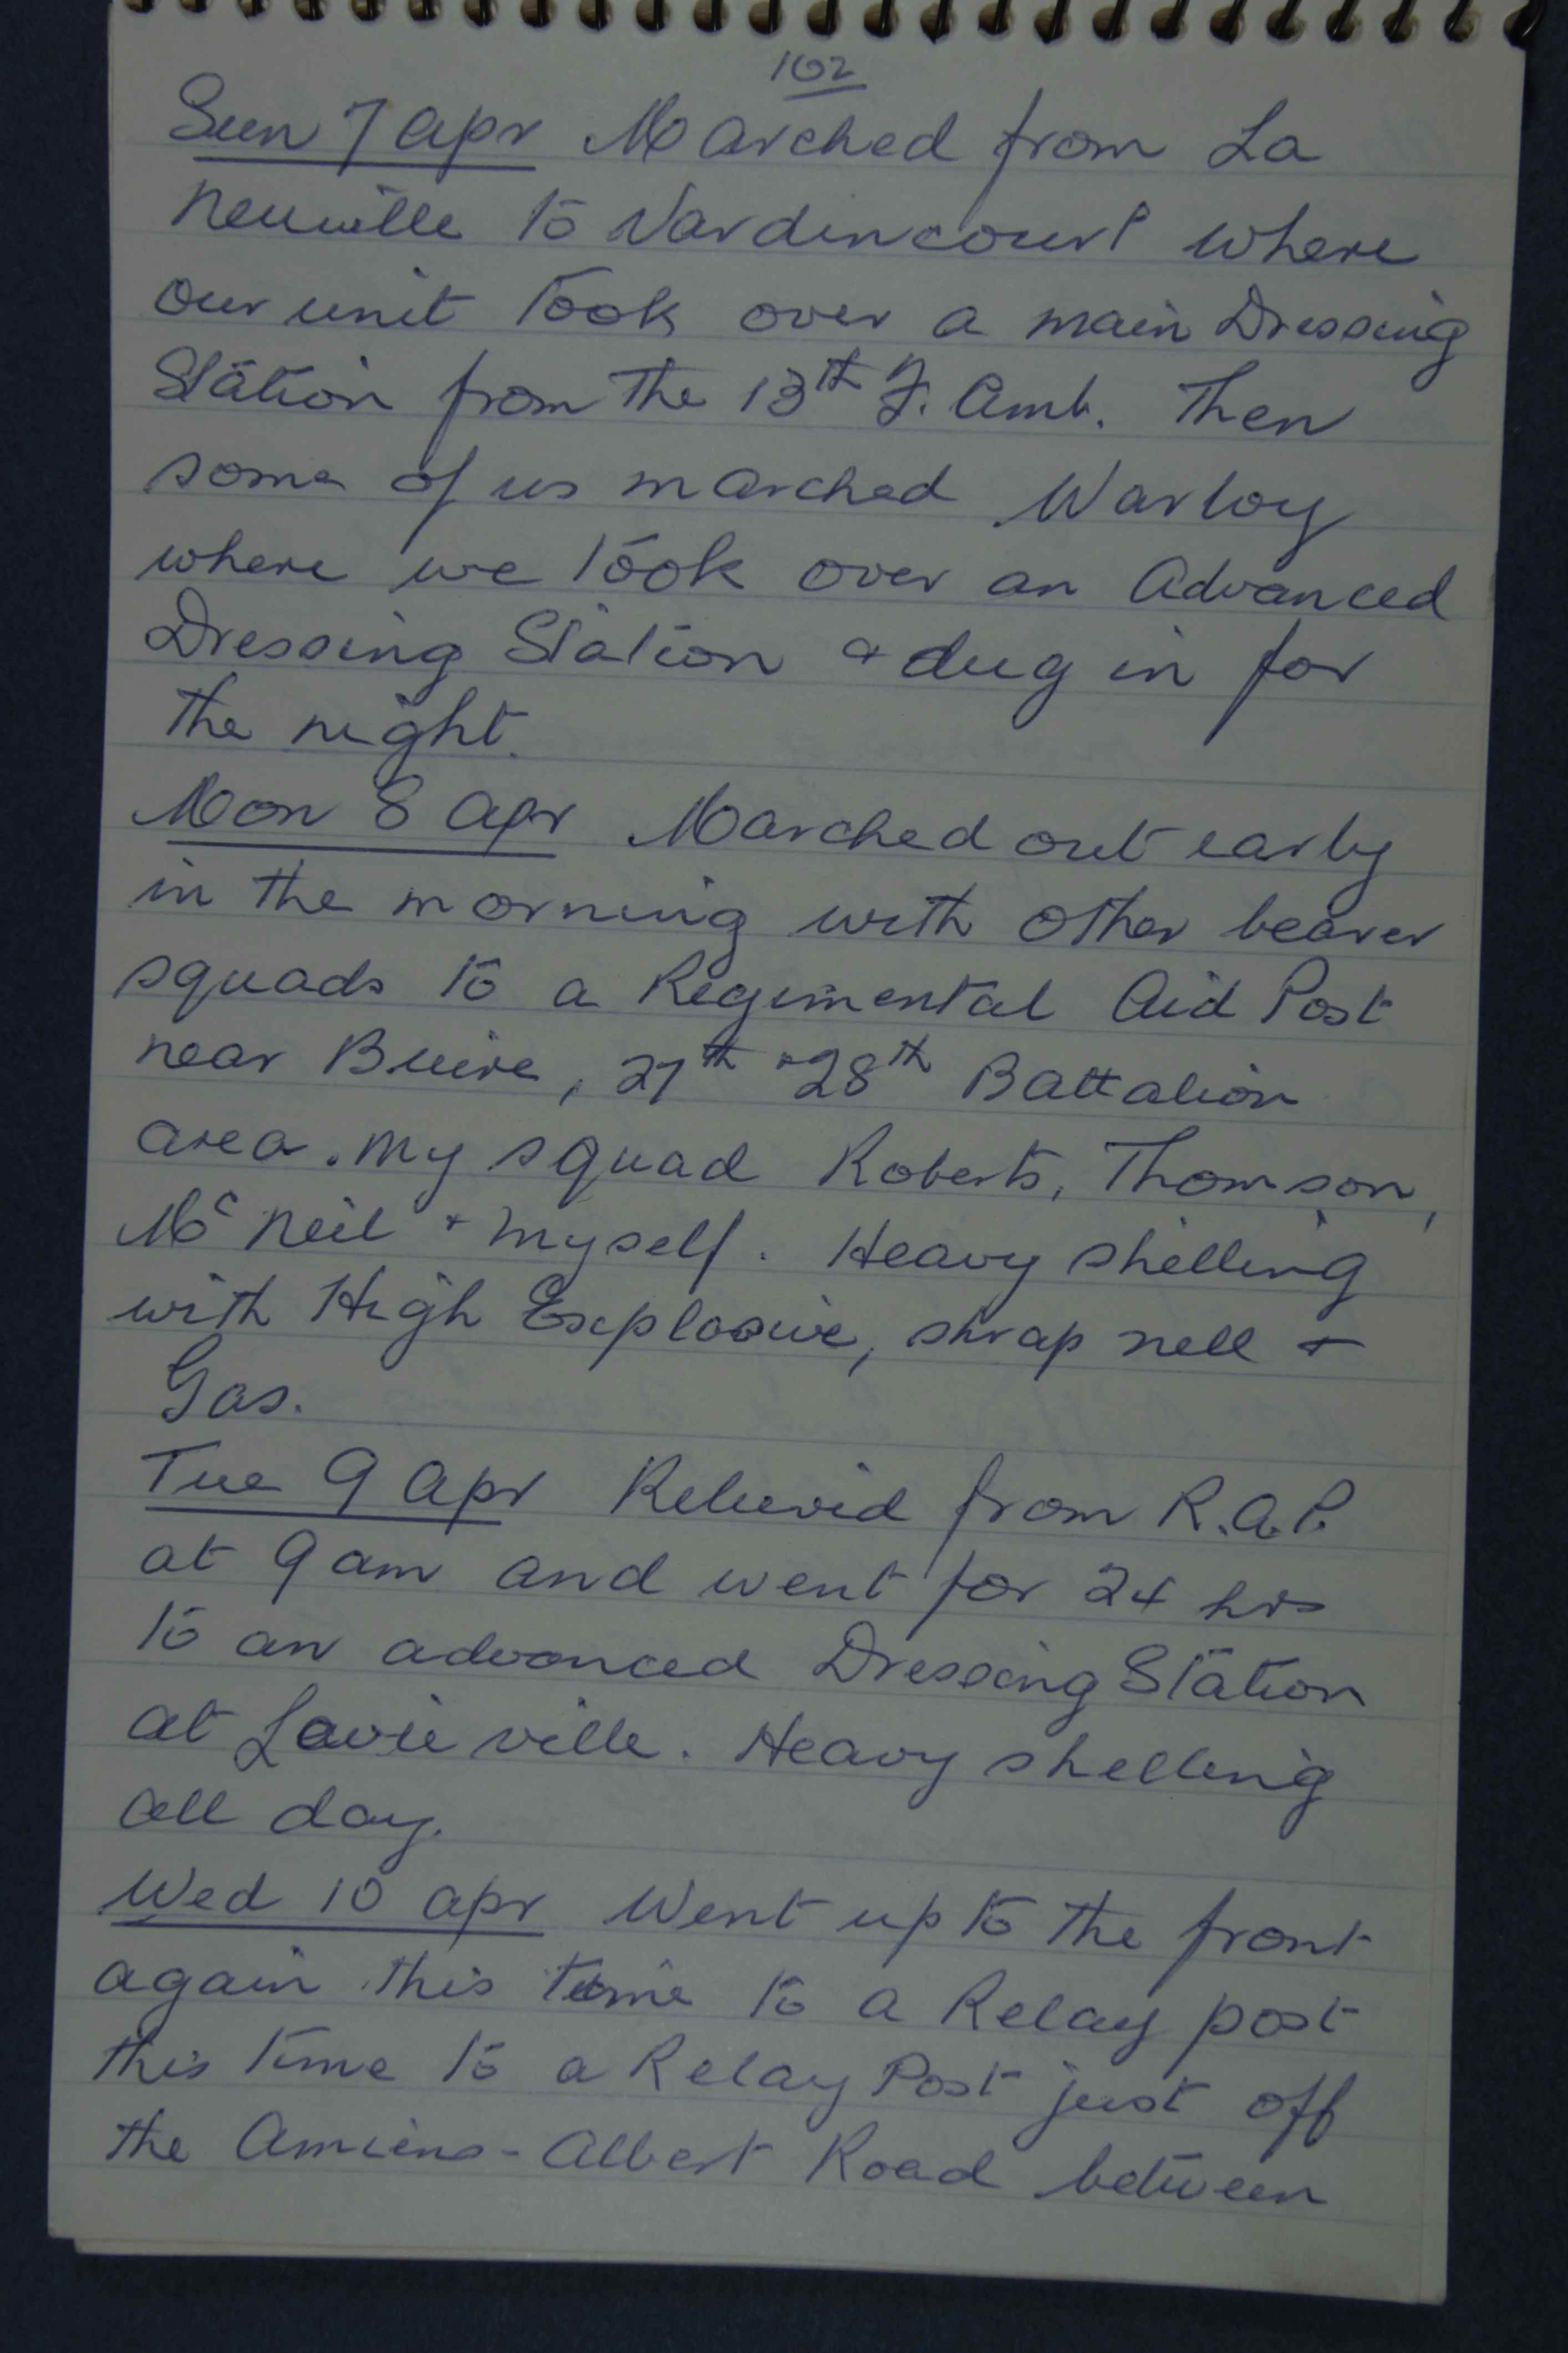 102
Sun 7 Apr Marched from La
Neuville to Vardencourt where
our unit took over a main Dressing
Station from the 13th F. Amb. Then
some of us marched Warloy
where we took over an Advanced
Dressing Station & dug in for
the night.
Mon 8 Apr Marched out early
in the morning with other bearer
squads to a Regimental Aid Post
near Buire, 27th & 28th Battalion
area. My squad Roberts, Thomson,
Mc Neil & myself. Heavy shelling
with High Explosive, shrapnell &
Gas.
Tue 9 Apr Relieved from R.A.P.
at 9 am and went for 24 hrs
to an advanced Dressing Station
at Lavieville. Heavy shelling
all day.
Wed 10 Apr Went up to the front
again this time to a Relay post
this time to a Relay Post just off
the Amiens-Albert Road between